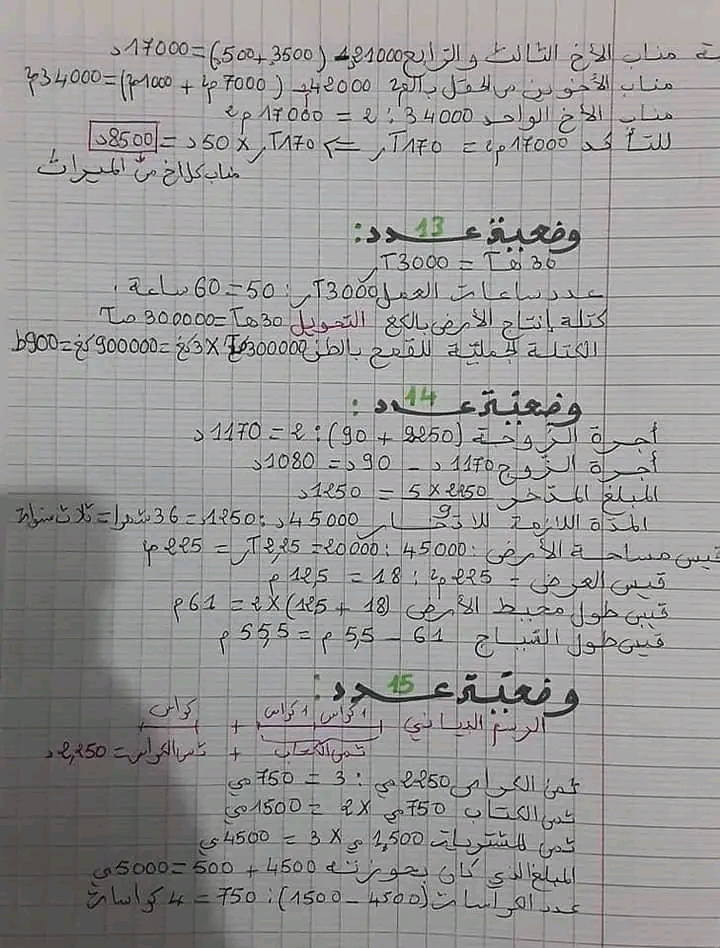 مناب الأخ الثالث والرابع 21000 - (3500 + 500) = 17000 د
مناب الأخوين من الحقل بالم² 42000 - (7000 م² + 1000 م²) = 34000 م²
مناب الأخ الواحد 34000 : 2 = 17000 م²
للتأكد 17000 م² = 170 آر => 170 آر × 50 د = 8500 د
مناب كل أخ من الميراث
وضعية عدد 13:
30 هآ = 3000 آر
عدد ساعات العمل 3000 آر : 50 = 60 ساعة.
كتلة إنتاج الأرض بالكغ التحويل 30 هآ = 300000 صآ
الكتلة الجملية للقمح بالطن 300000 × 3 كغ = 900000 كغ = 900 ط
وضعية عدد 14:
أجرة الزوجة (2250 + 90) : 2 = 1170 د
أجرة الزوج 1170 د - 90 د = 1080 د
المبلغ المدخر 2250 × 5 / 9 = 1250 د
المدة اللازمة للادخار 45000 د : 1250 = 36 شهرا = ثلاث سنوات
قيس مساحة الأرض: 45000 : 20000 = 2,25 آر = 225 م²
قيس العرض - 225 م² : 18 = 12,5 م
قيس طول محيط الأرض (18 + 12,5) × 2 = 61 م
قيس طول السياج 61 - 5,5 م = 55,5 م
وضعية عدد 15:
1 كراس 1 كراس + كراس
الرسم البياني
ثمن الكتاب + ثمن الكراس = 2,250 د
ثمن الكراس 2250 مي : 3 = 750 مي
ثمن الكتاب 750 مي × 2 = 1500 مي
ثمن المشتريات 1,500 مي × 3 = 4500 مي
المبلغ الذي كان بحوزته 4500 + 500 = 5000 مي
عدد الكراسات (4500 - 1500) : 750 = 4 كراسات